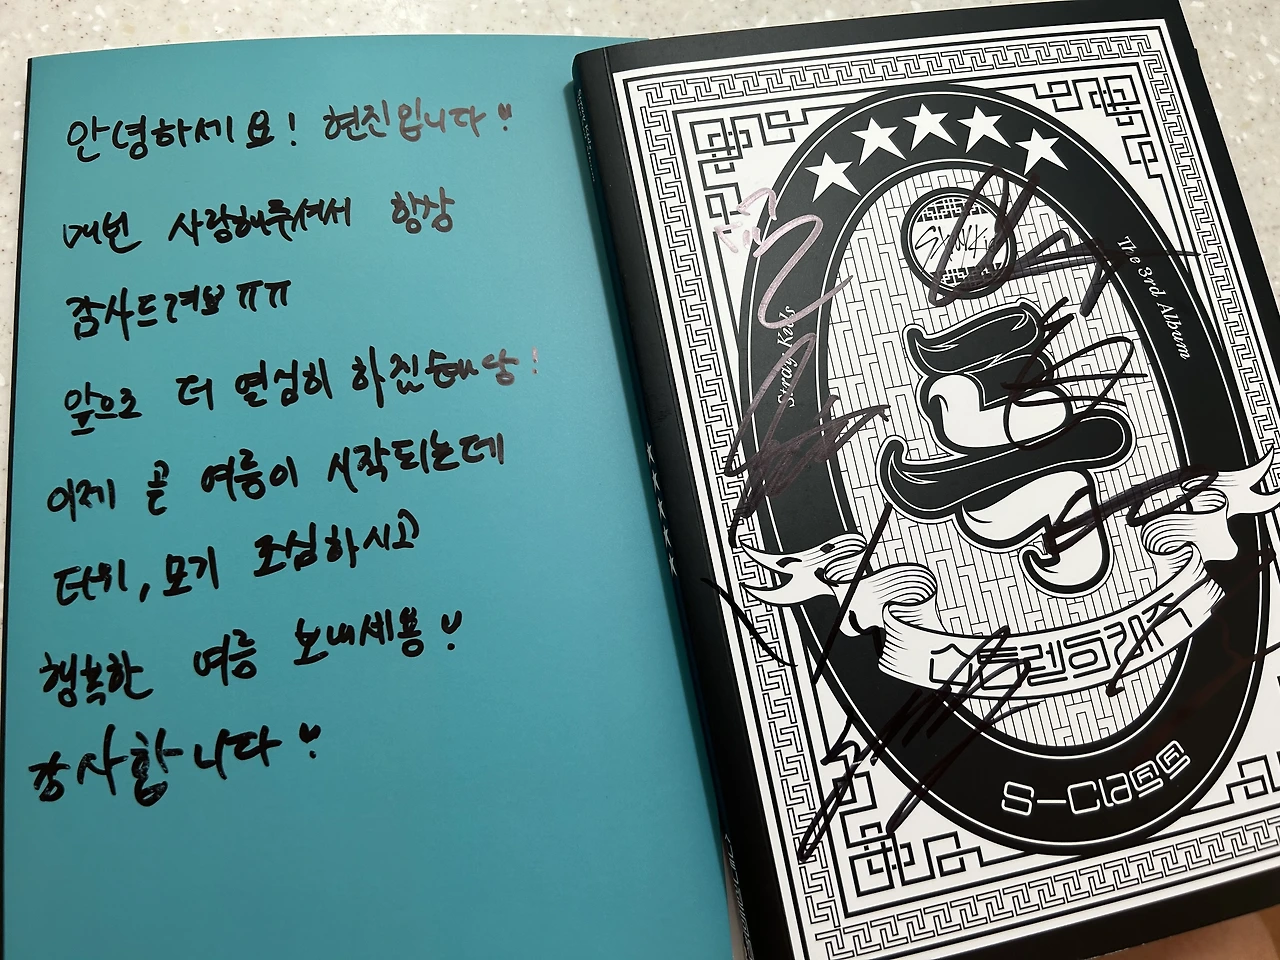 안녕하세요! 현진입니다♡
매번 사랑해주셔서 항상
감사드려요ㅠㅠ
앞으로 더 열심히 하겠습니당!
이제 곧 여름이 시작되는데
더위, 모기 조심하시고
행복한 여름 보내세용♡
감사합니다♡
Stray Kids
The 3rd Album
스트레이키즈
S-Class